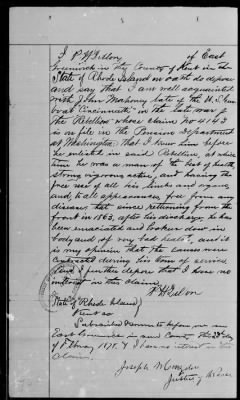 I P H Tilson of East
Greenwich in the County of Kent in the
State of Rhode Island on oath do depose
and say That I am well acquainted
with John Mahoney late of the U.S. Gun
boat "Cincinnatti" in the late war of
the Rebellion whose claim No 4143
is on file in the Pension department
at Washington. That I knew him before
he enlisted in said Rebellion, at which
time he was a man of the best of health,
strong, vigorous, active, and having the
free use of all his limbs and organs,
and to all appearances, free from any
disease, that since returning from the
front in 1863, after his discharge, he has
been emaciated and broken down in
body and of very bad health, and it
is my opinion, that the causes were
contracted during his term of service.
And I further depose that I have no
interest in this claim.
P H Tilson
State of Rhode Island
Kent sc
Subscribed & sworn to before me in
East Greenwich in said County this day
of February 1878. & I have no interest in this
claim.
Joseph
Justice of the Peace